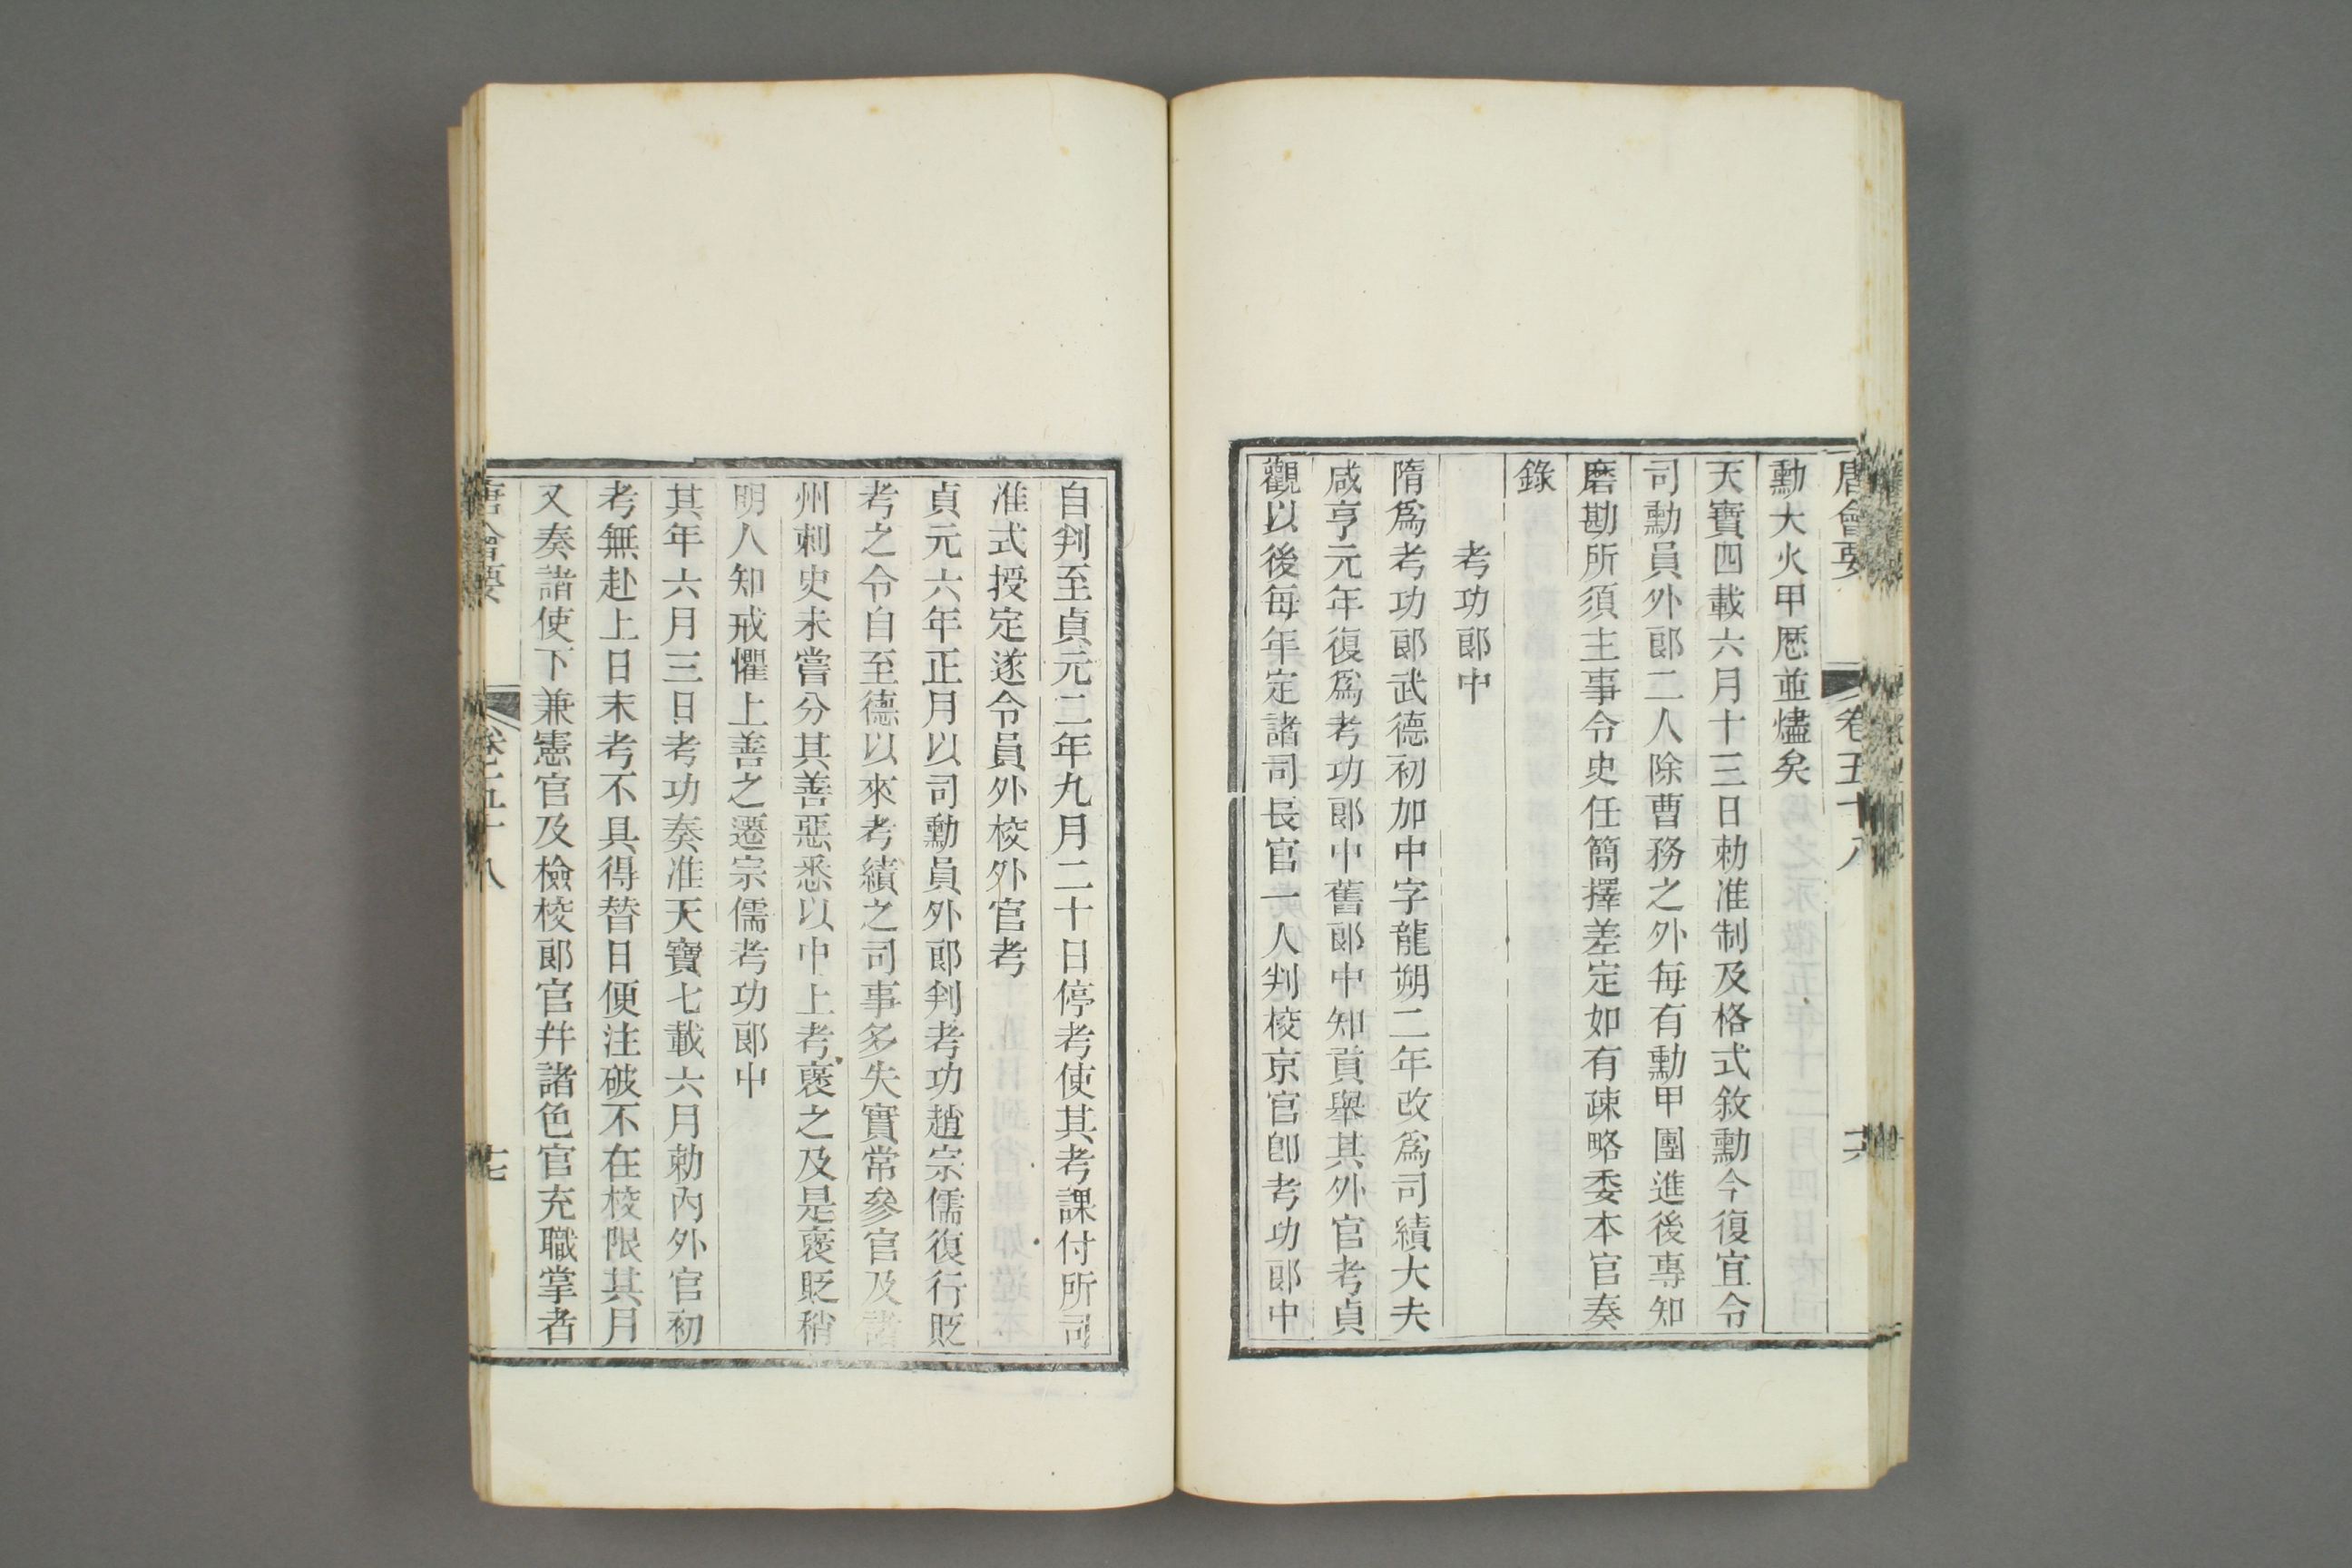 唐會要 卷五十八 六
勳大火甲歷並燼矣
天寶四載六月十三日勅准制及格式敘勳今復宜令
司勳員外郎二人除曹務之外每有勳甲團進後專知
磨勘所須主事令史任簡擇差定如有疎略委本官奏
錄
考功郎中
隋爲考功郎武德初加中字龍朔二年改爲司績大夫
咸亨元年復爲考功郎中舊郎中知貢舉其外官考貞
觀以後每年定諸司長官一人判校京官卽考功郎中
自判至貞元二年九月二十日停考使其考課付所司
准式授定遂令員外校外官考
貞元六年正月以司勳員外郎判考功趙宗儒復行貶
考之令自至德以來考績之司事多失實常參官及諸
州刺史未嘗分其善惡悉以中上考褒之及是褒貶稍
明人知戒懼上善之遷宗儒考功郎中
其年六月三日考功奏准天寶七載六月勅內外官初
考無赴上日未考不具得替日便注破不在校限其月
又奏諸使下兼憲官及檢校郎官幷諸色官充職掌者
唐會要 卷五十八 七